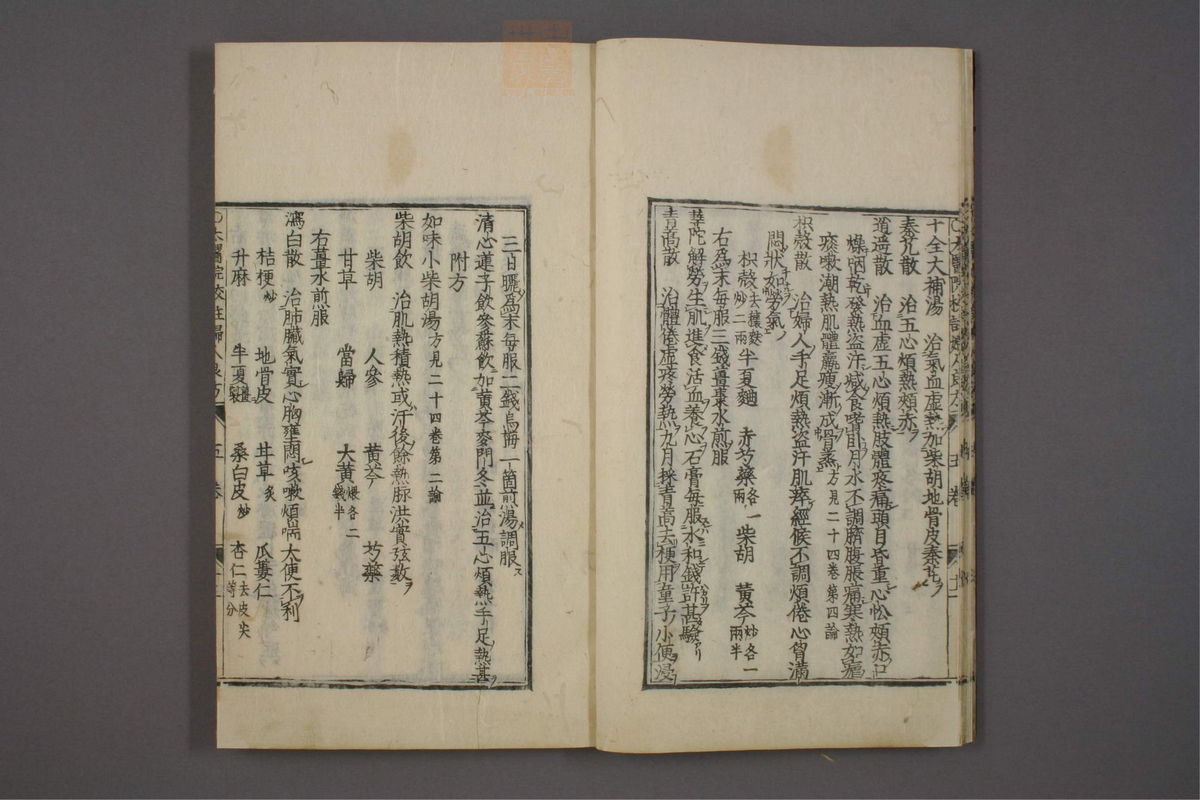 十全大補湯　治氣血虛熱加柴胡地骨皮秦艽
秦艽散　治五心煩熱頰赤
逍遥散　治血虛五心煩熱肢體疼痛頭目昏重心忪頰赤口
燥咽乾發熱盗汗減食嗜臥月水不調臍腹脹痛寒熱如瘧
痰嗽潮熱肌體羸瘦漸成骨蒸方見二十四卷第四論
枳殼散　治婦人手足煩熱盗汗肌瘁經候不調煩倦心胷滿
悶狀如勞氣
枳殼去穰麩炒二兩　半夏麯　赤芍藥各一兩　柴胡　黃芩炒各一兩半
右爲末每服三錢薑棗水煎服
華陀解勞生肌進食活血養心石膏每服水和錢許甚驗
青蒿散　治體倦虛痰勞熱九月採青蒿去梗用童子小便浸
三日曬爲末每服二錢烏梅一箇煎湯調服
清心蓮子飲參蘇飲加黃芩麥門冬並治五心煩熱手足熱甚
附方
如味小柴胡湯方見二十四卷第二論
柴胡飲　治肌熱積熱或汗後餘熱脉洪實弦數
柴胡　人參　黃芩　芍藥
甘草　當歸　大黃煨各二錢半
右薑水煎服
瀉白散　治肺臟氣實心胸壅悶咳嗽煩喘大便不利
桔梗炒　地骨皮　甘草炙　瓜蔞仁
升麻　半夏　桑白皮炒　杏仁去皮尖等分
五卷